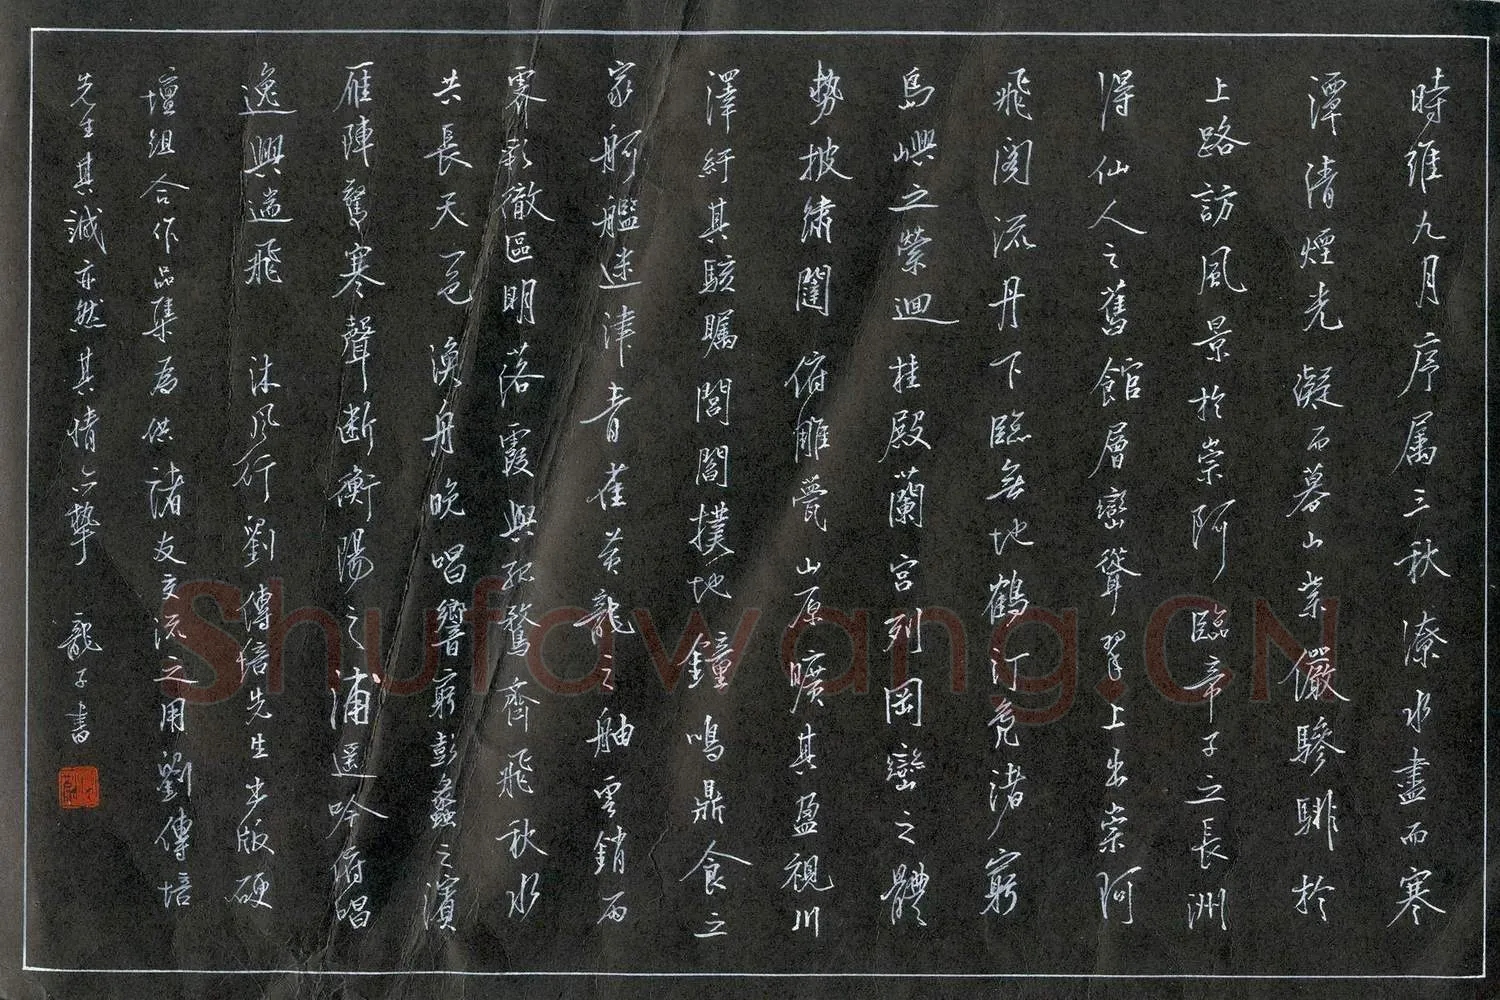 時維九月序属三秋潦水盡而寒
潭清煙光凝而暮山紫儼驂騑於
上路訪風景於崇阿臨帝子之長洲
得仙人之舊館層巒聳翠上出崇阿
飛閣流丹下臨無地鶴汀鳧渚窮
島嶼之縈迴桂殿蘭宮列岡巒之體
勢披繡闥俯雕甍山原曠其盈視川
澤紆其駭矚閭閻撲地鐘鳴鼎食之
家舸艦迷津青雀黃龍之舳雲銷雨
霽彩徹區明落霞與孤鶩齊飛秋水
共長天一色漁舟晚唱響窮彭蠡之濱
雁陣驚寒聲斷衡陽之浦遥吟俯唱
逸興遄飛 沐風行劉傳培先生出版硬
壇組合作品集為供諸友交流之用劉傳培
先生其誠亦然其情亦摯 龍子書
Shufawang.CN